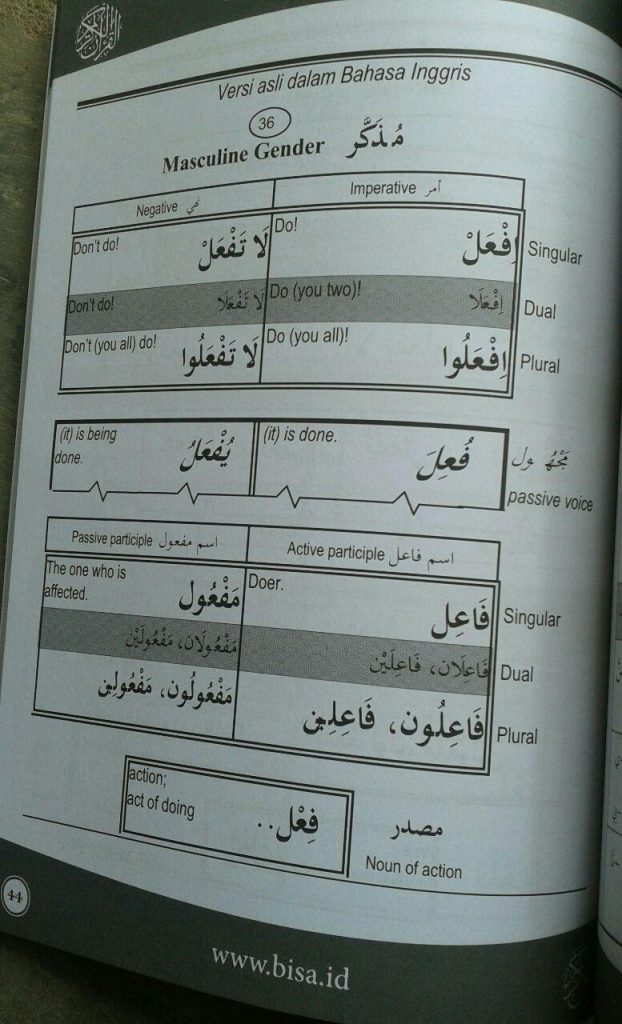 القرآن الكريم
Versi asli dalam Bahasa Inggris
36
Masculine Gender مُذَكَّر
Negative نهي Imperative أمر
Don't do! لَا تَفْعَلْ Do! اِفْعَلْ Singular
Don't do! لَا تَفْعَلَا Do (you two)! اِفْعَلَا Dual
Don't (you all) do! لَا تَفْعَلُوا Do (you all)! اِفْعَلُوا Plural
(it) is being done. يُفْعَلُ (it) is done. فُعِلَ مَجْهُول
passive voice
Passive participle اسم مفعول Active participle اسم فاعل
The one who is affected. مَفْعُول Doer. فَاعِل Singular
مَفْعُولَان، مَفْعُولَيْن فَاعِلَان، فَاعِلَيْن Dual
مَفْعُولُون، مَفْعُولِين فَاعِلُون، فَاعِلِين Plural
action;
act of doing فِعْل.. مصدر
Noun of action
44
www.bisa.id